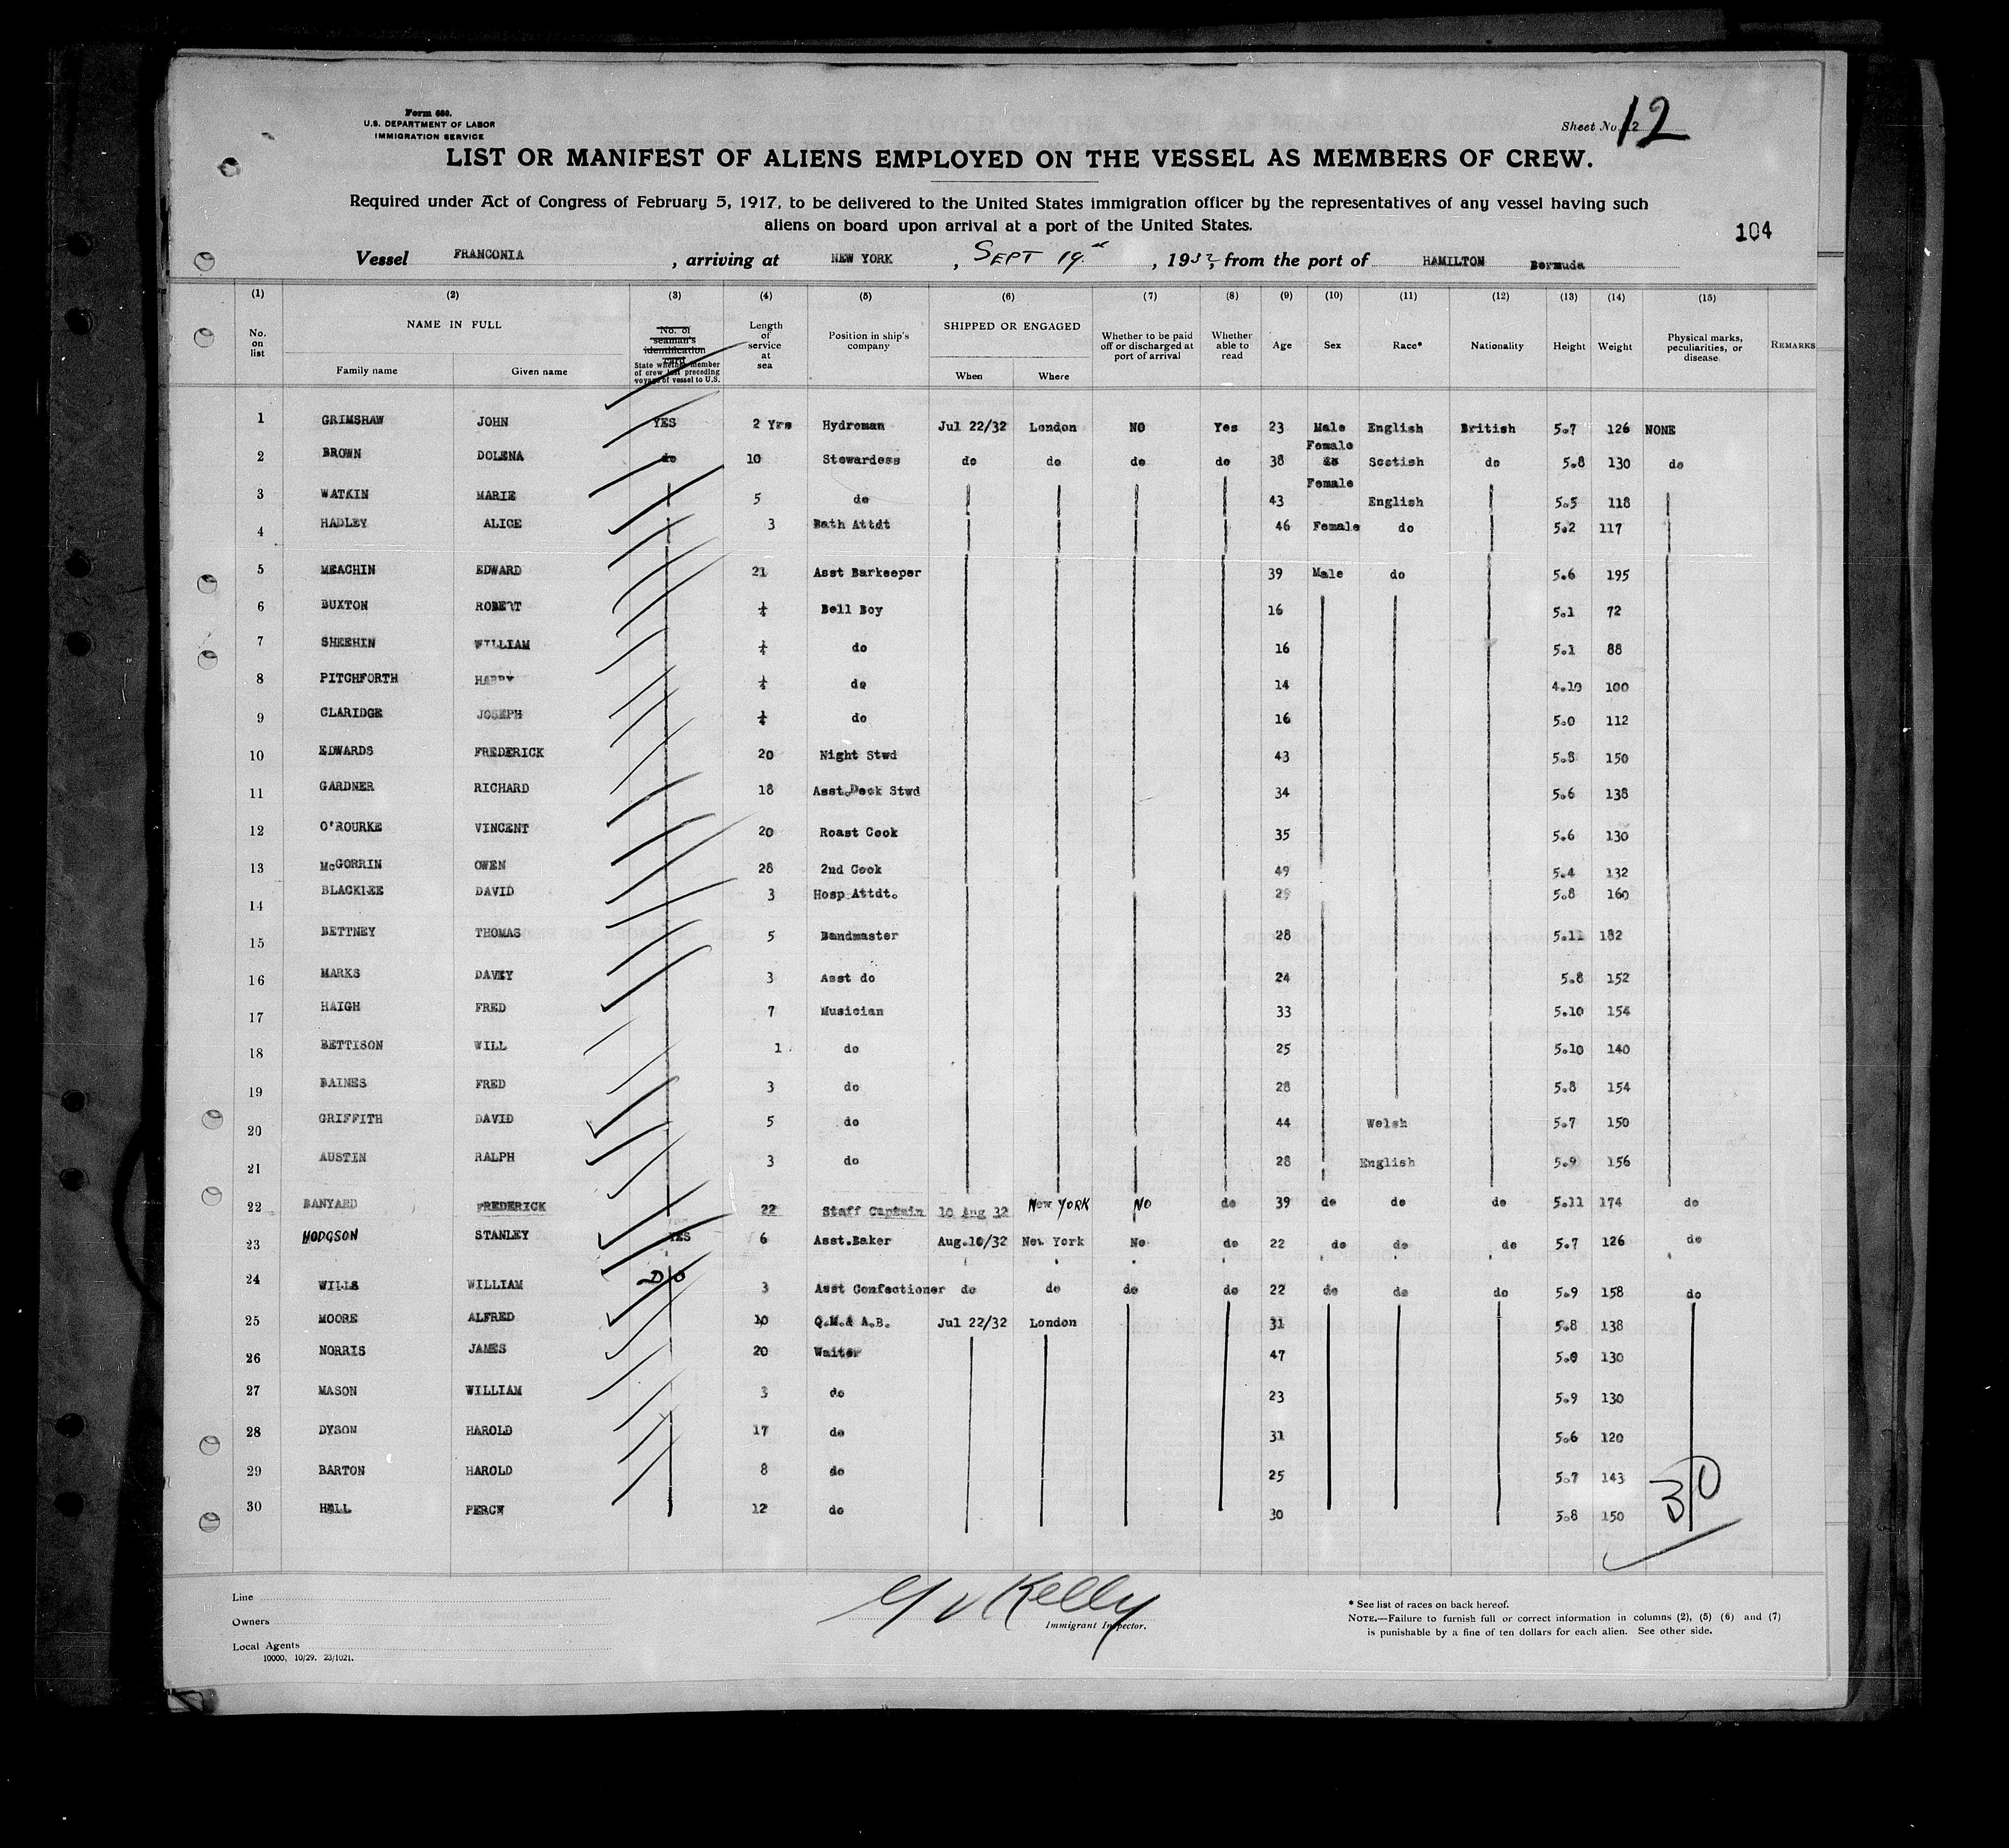 Form 680.
U.S. DEPARTMENT OF LABOR
IMMIGRATION SERVICE
Sheet No. 12 12
LIST OR MANIFEST OF ALIENS EMPLOYED ON THE VESSEL AS MEMBERS OF CREW.
Required under Act of Congress of February 5, 1917, to be delivered to the United States immigration officer by the representatives of any vessel having such
aliens on board upon arrival at a port of the United States.
104
Vessel FRANCONIA, arriving at NEW YORK, SEPT 19th, 1932, from the port of HAMILTON Bermuda
(1) (2) (3) (4) (5) (6) (7) (8) (9) (10) (11) (12) (13) (14) (15)
No. on list NAME IN FULL Family name Given name No. of seaman's identification card State whether member of crew last preceding voyage of vessel to U.S. Length of service at sea Position in ship's company SHIPPED OR ENGAGED When Where Whether to be paid off or discharged at port of arrival Whether able to read Age Sex Race* Nationality Height Weight Physical marks, peculiarities, or disease. REMARKS
1 GRIMSHAW JOHN YES 2 Yrs Hydroman Jul 22/32 London NO Yes 23 Male English British 5.7 126 NONE
2 BROWN DOLENA do 10 Stewardess do do do do 38 Female do Scotish do 5.8 130 do
3 WATKIN MARIE 5 do 43 Female English 5.5 118
4 HADLEY ALICE 3 Bath Attdt 46 Female do 5.2 117
5 MEACHIN EDWARD 21 Asst Barkeeper 39 Male do 5.6 195
6 BUXTON ROBERT ¼ Bell Boy 16 5.1 72
7 SHEEHIN WILLIAM ¼ do 16 5.1 88
8 PITCHFORTH HARRY ¼ do 14 4.10 100
9 CLARIDGE JOSEPH ¼ do 16 5.0 112
10 EDWARDS FREDERICK 20 Night Stwd 43 5.8 150
11 GARDNER RICHARD 18 Asst.Deck Stwd 34 5.6 138
12 O'ROURKE VINCENT 20 Roast Cook 35 5.6 130
13 McGORRIN OWEN 28 2nd Cook 49 5.4 132
14 BLACKLEE DAVID 3 Hosp Attdt. 29 5.8 160
15 BETTNEY THOMAS 5 Bandmaster 28 5.11 182
16 MARKS DAVEY 3 Asst do 24 5.8 152
17 HAIGH FRED 7 Musician 33 5.10 154
18 BETTISON WILL 1 do 25 5.10 140
19 BAINES FRED 3 do 28 5.8 154
20 GRIFFITH DAVID 5 do 44 Welsh 5.7 150
21 AUSTIN RALPH 3 do 28 English 5.9 156
22 BANYARD FREDERICK 22 Staff Captain 10 Aug 32 New YORK NO do 39 do do do 5.11 174 do
23 HODGSON STANLEY YES 6 Asst.Baker Aug.10/32 New York No do 22 do do do 5.7 126 do
24 WILLS WILLIAM DO 3 Asst Confectioner do do do do 22 do do do 5.9 158 do
25 MOORE ALFRED 10 Q.M.& A.B. Jul 22/32 London 31 5.8 138
26 NORRIS JAMES 20 Waiter 47 5.0 130
27 MASON WILLIAM 3 do 23 5.9 130
28 DYSON HAROLD 17 do 31 5.6 120
29 BARTON HAROLD 8 do 25 5.7 143
30 HALL PERCY 12 do 30 5.8 150
30
Line
Owners
Local Agents
10000, 10/29. 23/1021.
G V Kelly
Immigrant Inspector.
* See list of races on back hereof.
NOTE.—Failure to furnish full or correct information in columns (2), (5) (6) and (7)
is punishable by a fine of ten dollars for each alien. See other side.